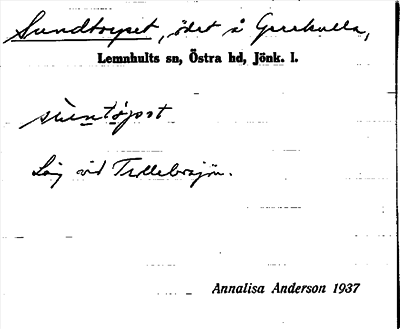 Sundtorpet, ödet å Grerhulla,
Lemnhults sn, Östra hd, Jönk. l.
sùentờpət
Låg vid Trollebosjön.
Annalisa Anderson 1937